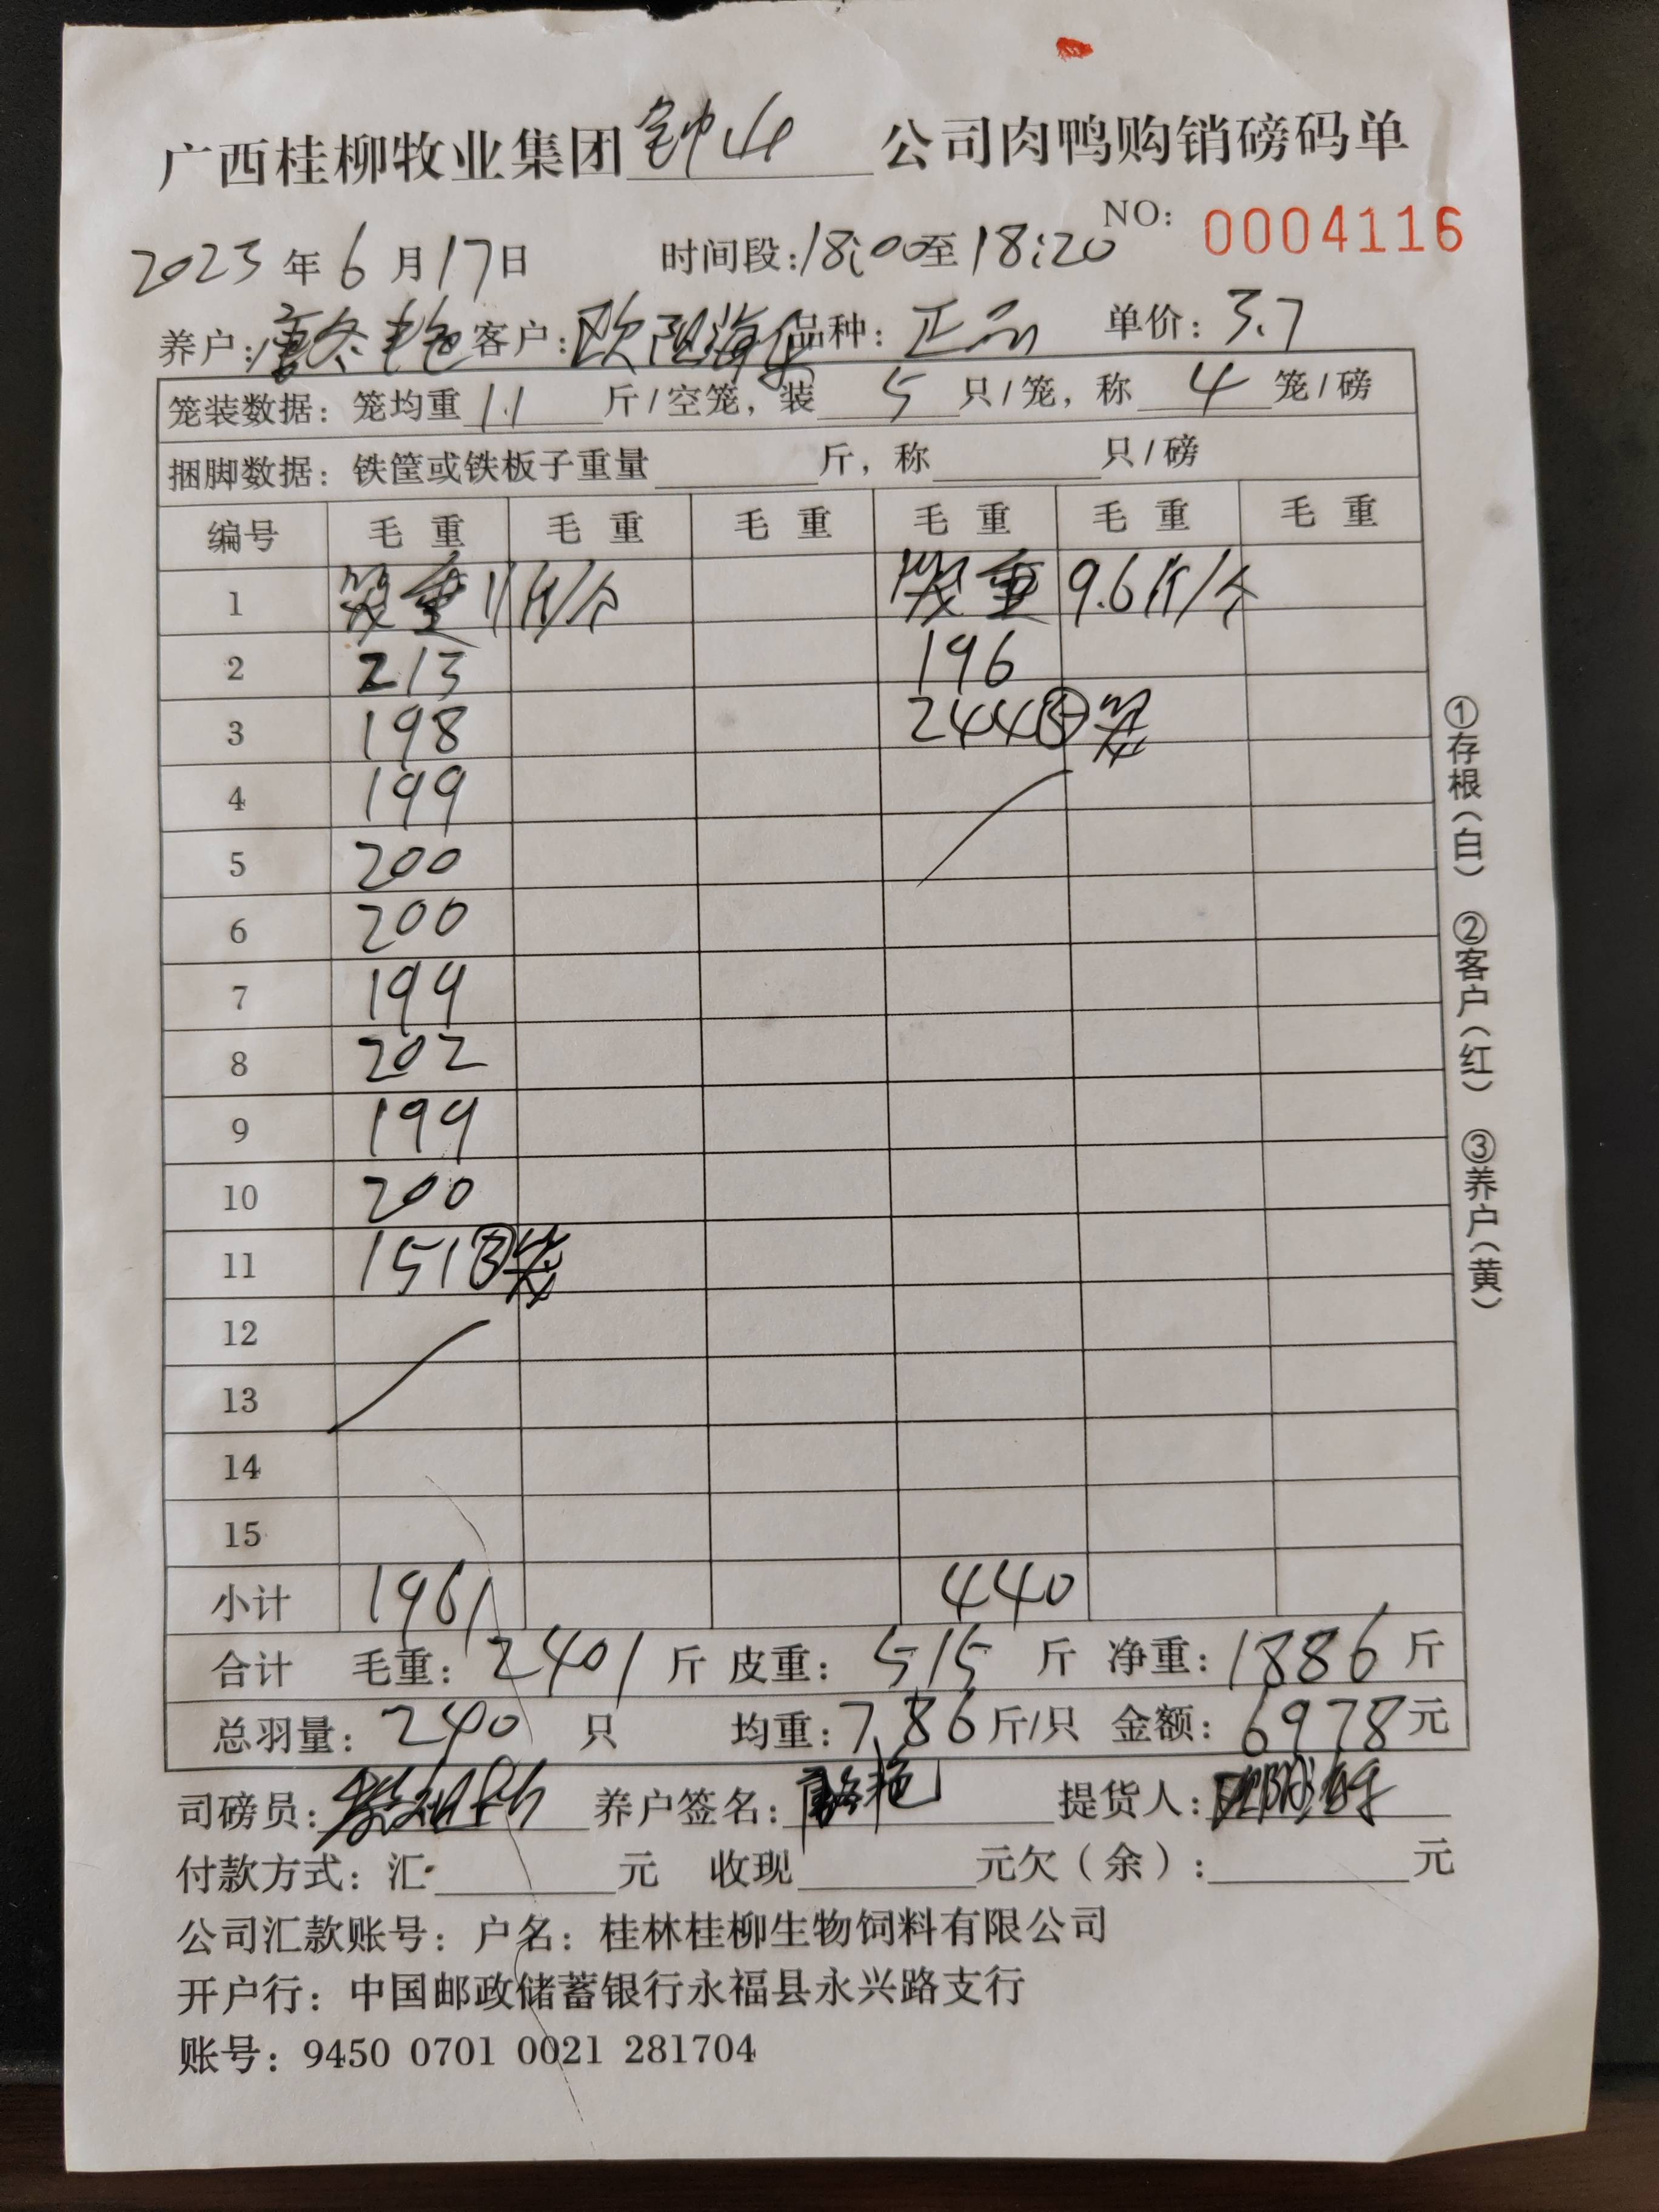 广西桂柳牧业集团钟山公司肉鸭购销磅码单
NO: 0004116
2023年6月17日 时间段:18:00至18:20
养户:唐冬艳 客户:欧阳海 品种:正品 单价:3.7
笼装数据:笼均重11斤/空笼,装5只/笼,称4笼/磅
捆脚数据:铁筐或铁板子重量 斤,称 只/磅
编号 毛重 毛重 毛重 毛重 毛重 毛重
1 笼重11斤/个 笼重9.6斤/个
2 213 196
3 198 244⑤笼
4 199
5 200
6 200
7 199
8 202
9 199
10 200
11 151③笼
12
13
14
15
小计 1961 440
合计 毛重:2401斤 皮重:515斤 净重:1886斤
总羽量:240只 均重:7.86斤/只 金额:6978元
司磅员: 养户签名:唐冬艳 提货人:欧阳海
付款方式:汇 元 收现 元欠(余): 元
公司汇款账号:户名:桂林桂柳生物饲料有限公司
开户行:中国邮政储蓄银行永福县永兴路支行
账号:9450 0701 0021 281704
①存根(白) ②客户(红) ③养户(黄)